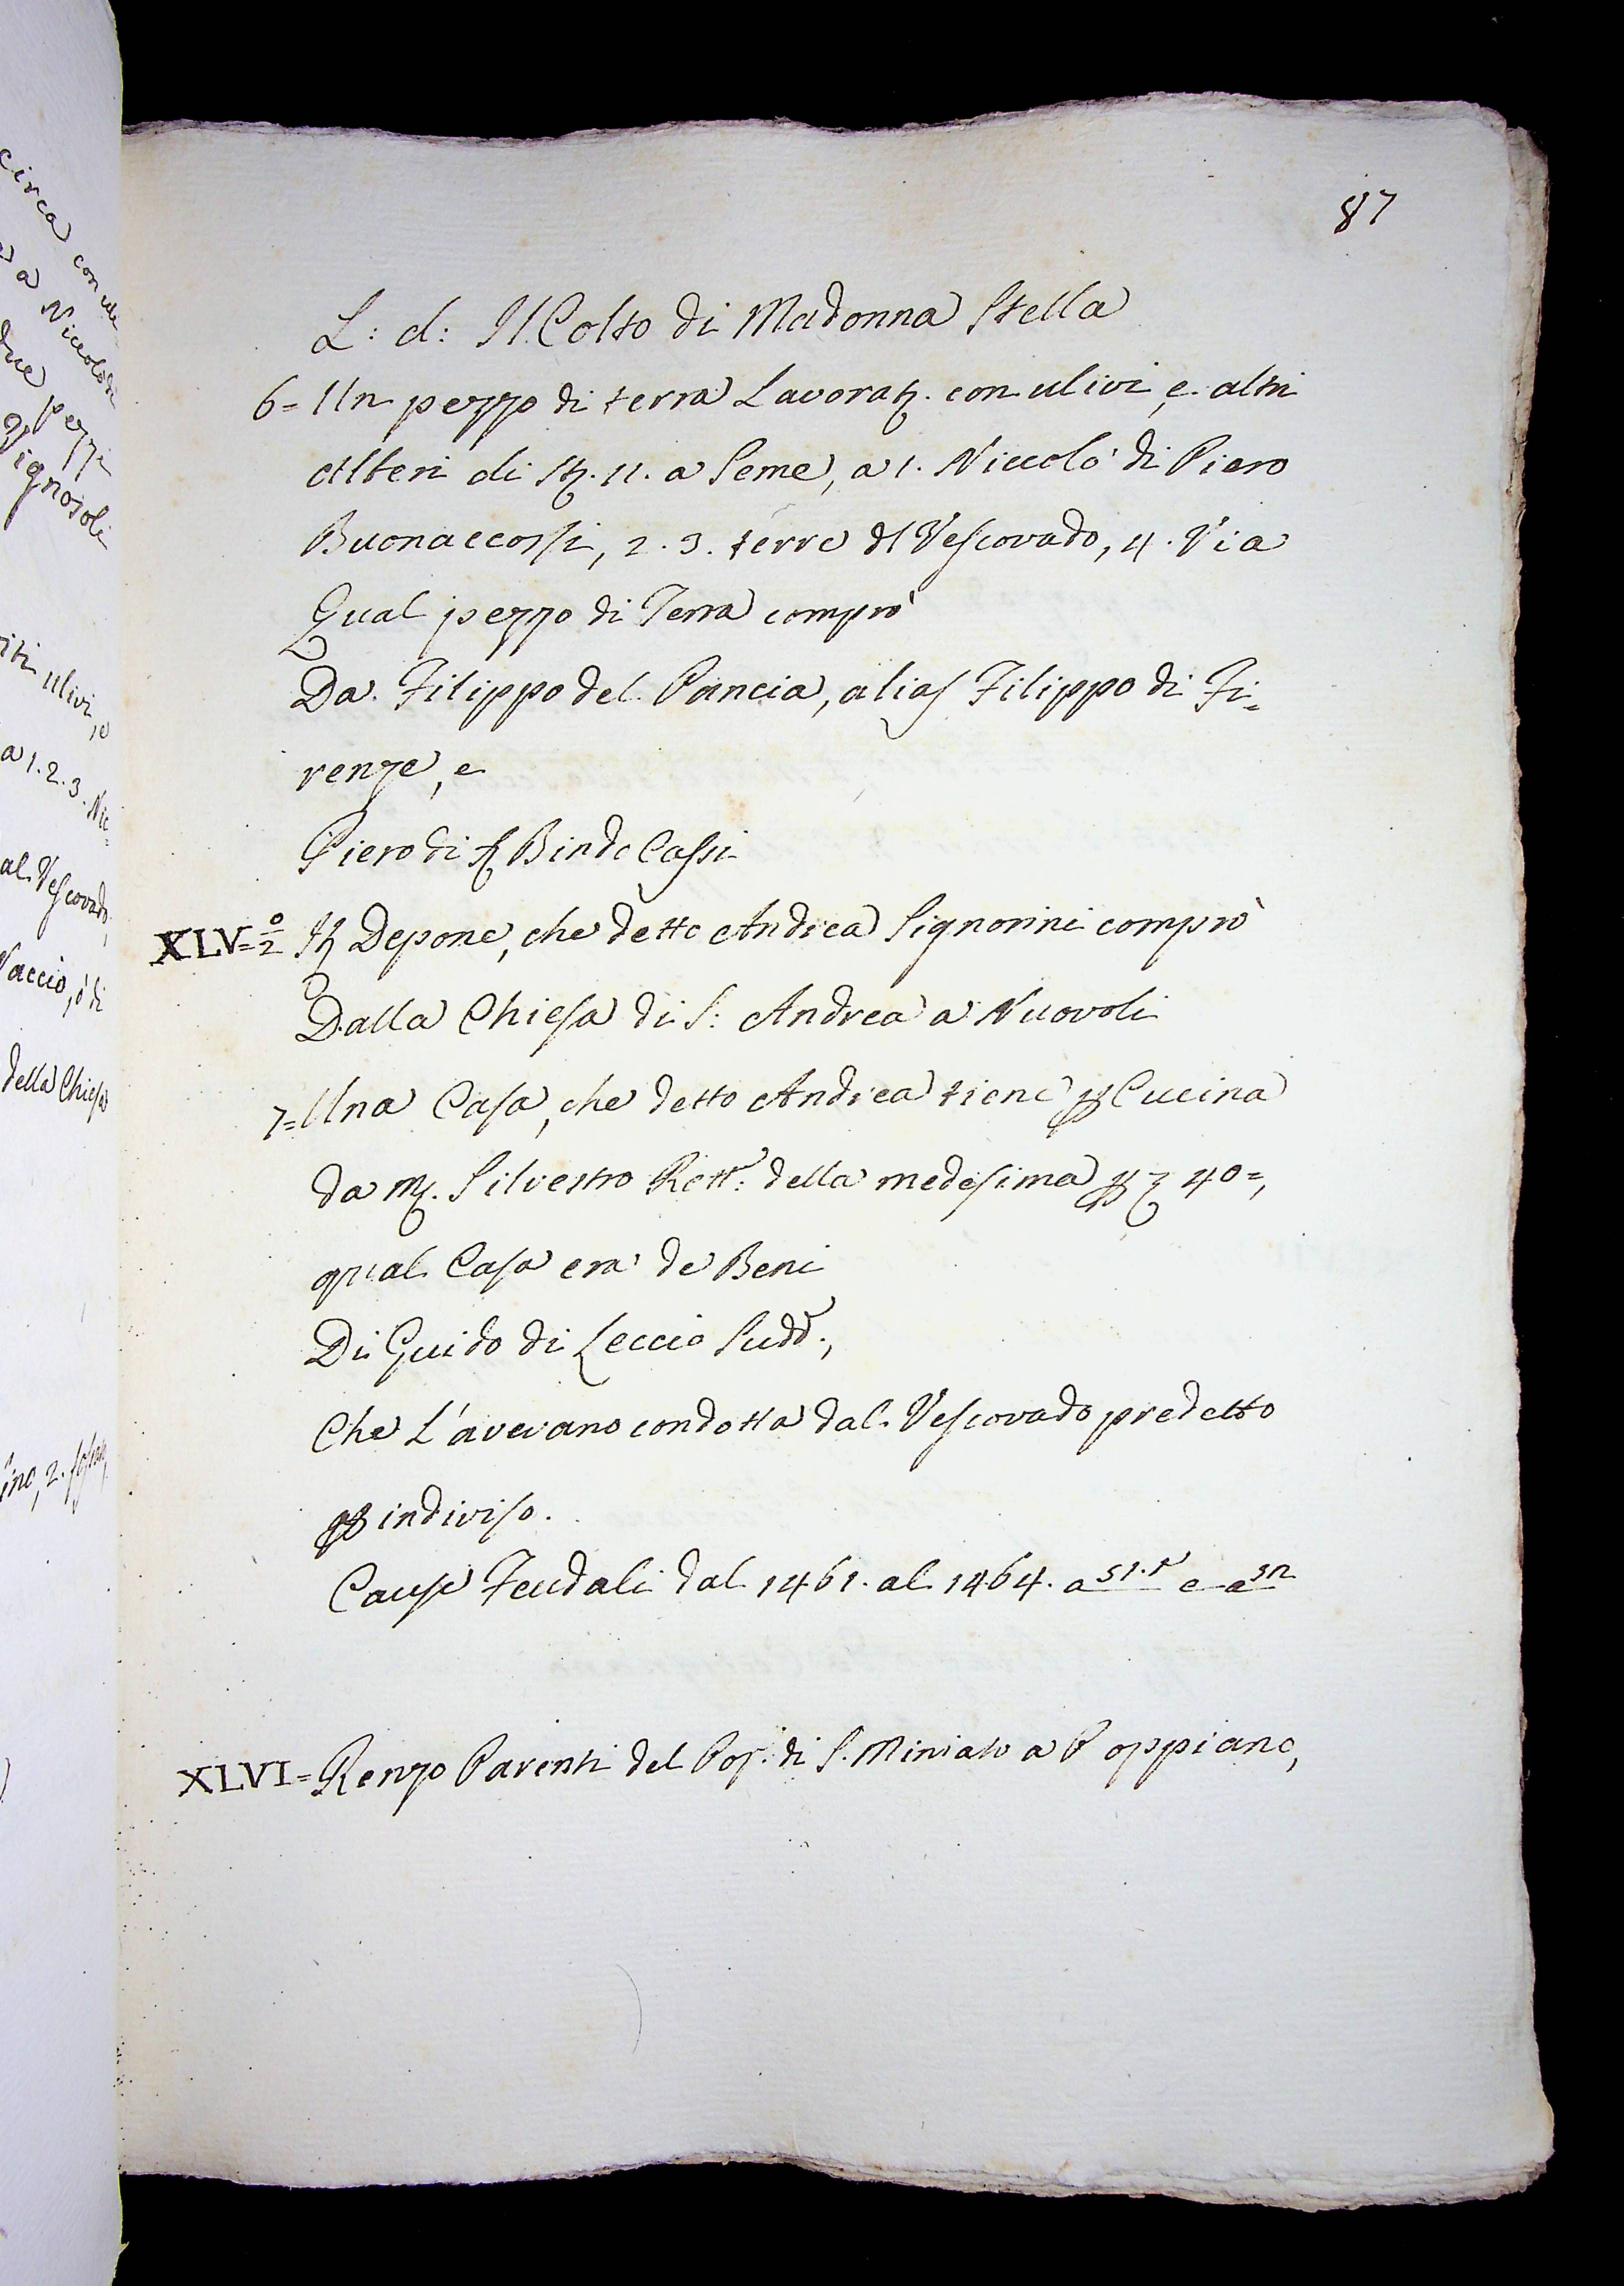 87
L: d: Il Colto di Madonna Stella
6= Un pezzo di terra Lavorat. con ulivi, e altri
Alberi di St. 11. a Seme, a 1. Niccolò di Piero
Buonaccorsi, 2. 3. terre dl Vescovado, 4. Via
Qual pezzo di Terra comprò
Da Filippo del Pancia, alias Filippo di Fi=
renze, e
Piero di Bindo Cassi
XLV=2º It Depone, che detto Andrea Signorini comprò
Dalla Chiesa di S: Andrea a Nuovoli
7= Una Casa, che detto Andrea tiene p Cucina
da m. Silvestro Rett.e della medesima p 40=,
qual Casa era de Beni
Di Guido di Leccio Sudd.,
Che L'avevano condotta dal Vescovado predetto
p indiviso.
Cause Feudali dal 1461. al 1464. a 51.t e a 52
XLVI= Renzo Parenti del Pop. di S. Miniato a Poppiano,
circa con
a Niccolò di
due pezzi
Vignosoli
viti ulivi, e
a 1. 2. 3. Nic=
al Vescovado,
Vaccio, ò di
della Chiesa
2. fossato,